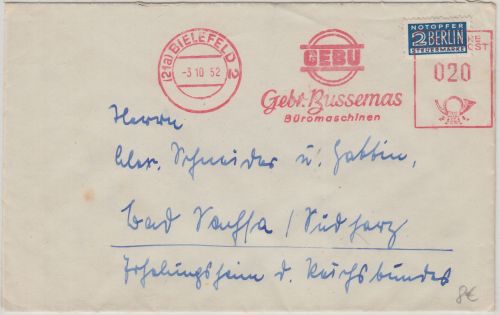 (21a) BIELEFELD 2
-3 10 52
GEBU
Gebr. Bussemas
Büromaschinen
NOTOPFER
2 BERLIN
STEUERMARKE
020
Herrn
Alex. Schneider u. Gattin,
Bad Sachsa / Südharz
Erholungsheim d. Reichsbundes
8€